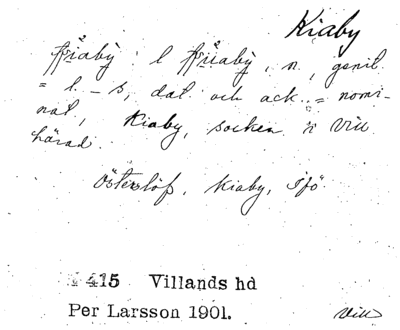 Kiaby
l n., genit.
= l. -s, dat. och ack. = nomi-
nat, Kiaby, socken i Vill.
härad.
Österslöf, Kiaby, Ifö.
415 Villands hd
Per Larsson 1901. Vill